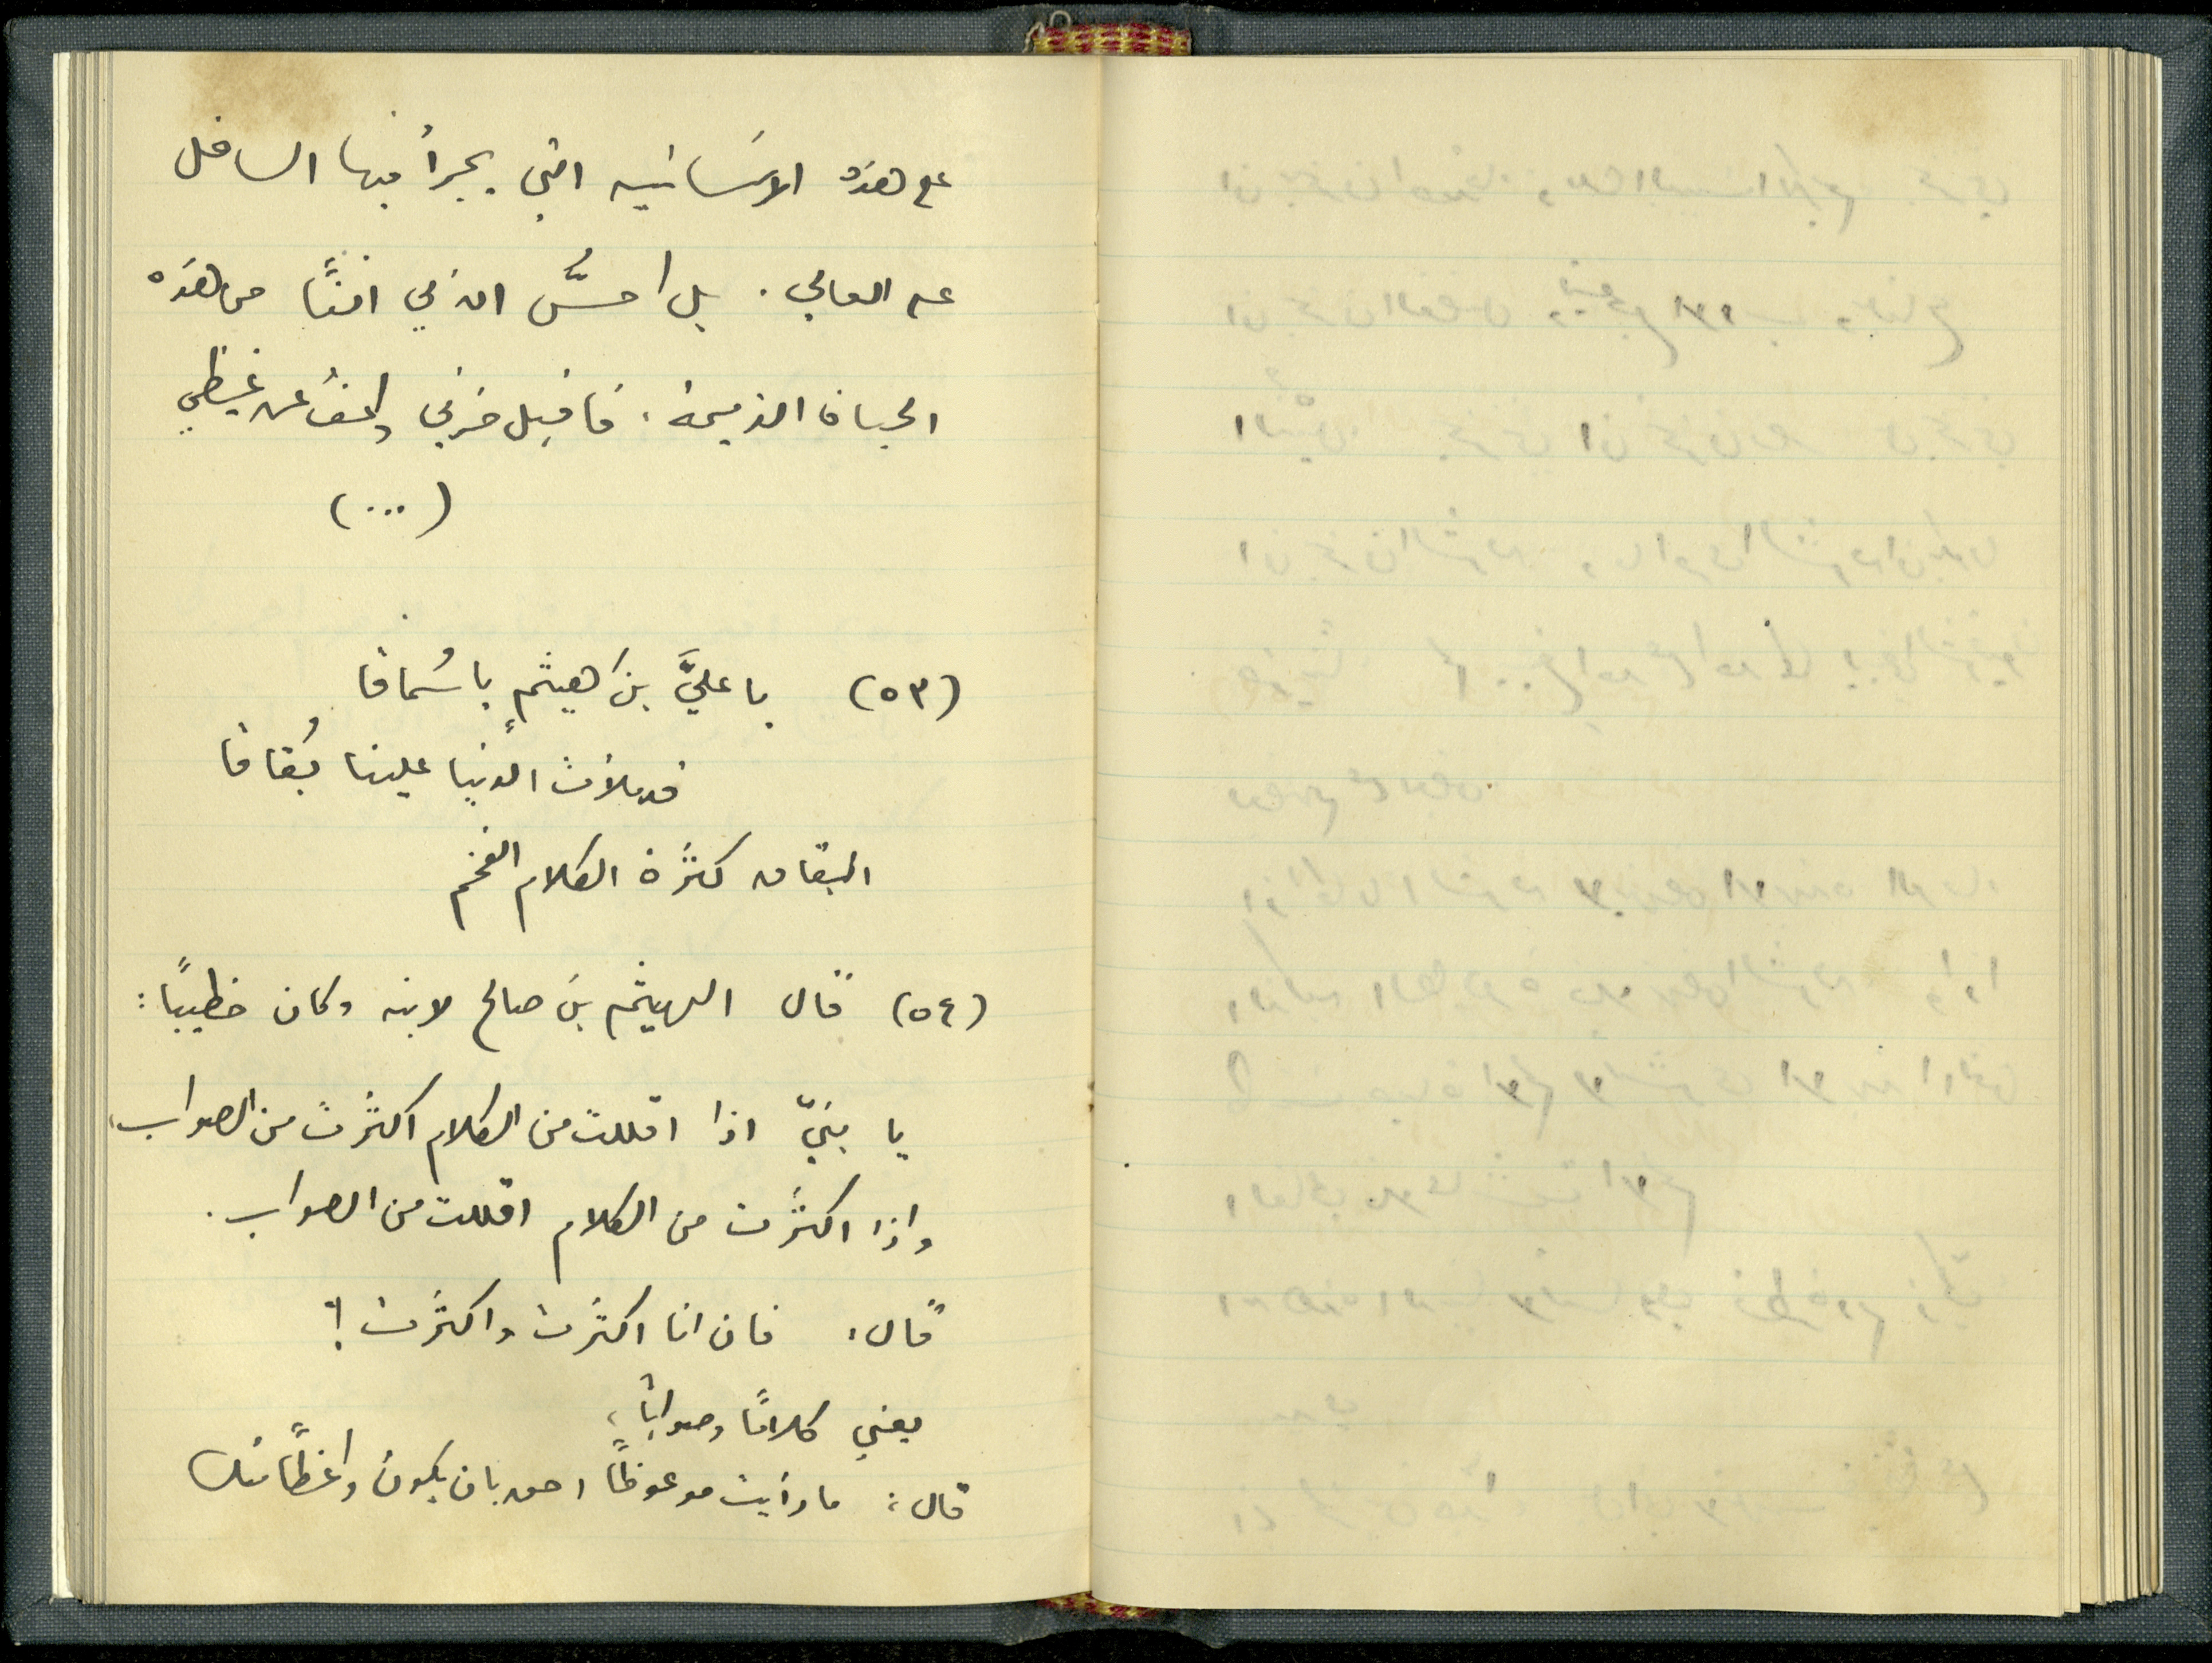 على هذه الانسانية التي يجرأ فيها السافل
على العالي . بل احسُّ ان في انفًا من هذه
الحياة الذميمة . فاقبل حزني واعفُ عن غيظي
(...)
(٥٣) يا عليَّ بنَ هيثمٍ يا سُماقا
قد ملأتَ الدنيا علينا بُقاقا
البقاق كثرة الكلام الفخم
(٥٤) قال الهيثم بن صالح لابنه وكان خطيبًا :
يا بنيّ اذا اقللت من الكلام اكثرت من الصواب،
واذا اكثرت من الكلام اقللت من الصواب .
قال : فان انا اكثرت واكثرت !؟
يعني كلامًا وصوابًا ،
قال : ما رأيت موعوظًا احق بان يكون واعظًا منك